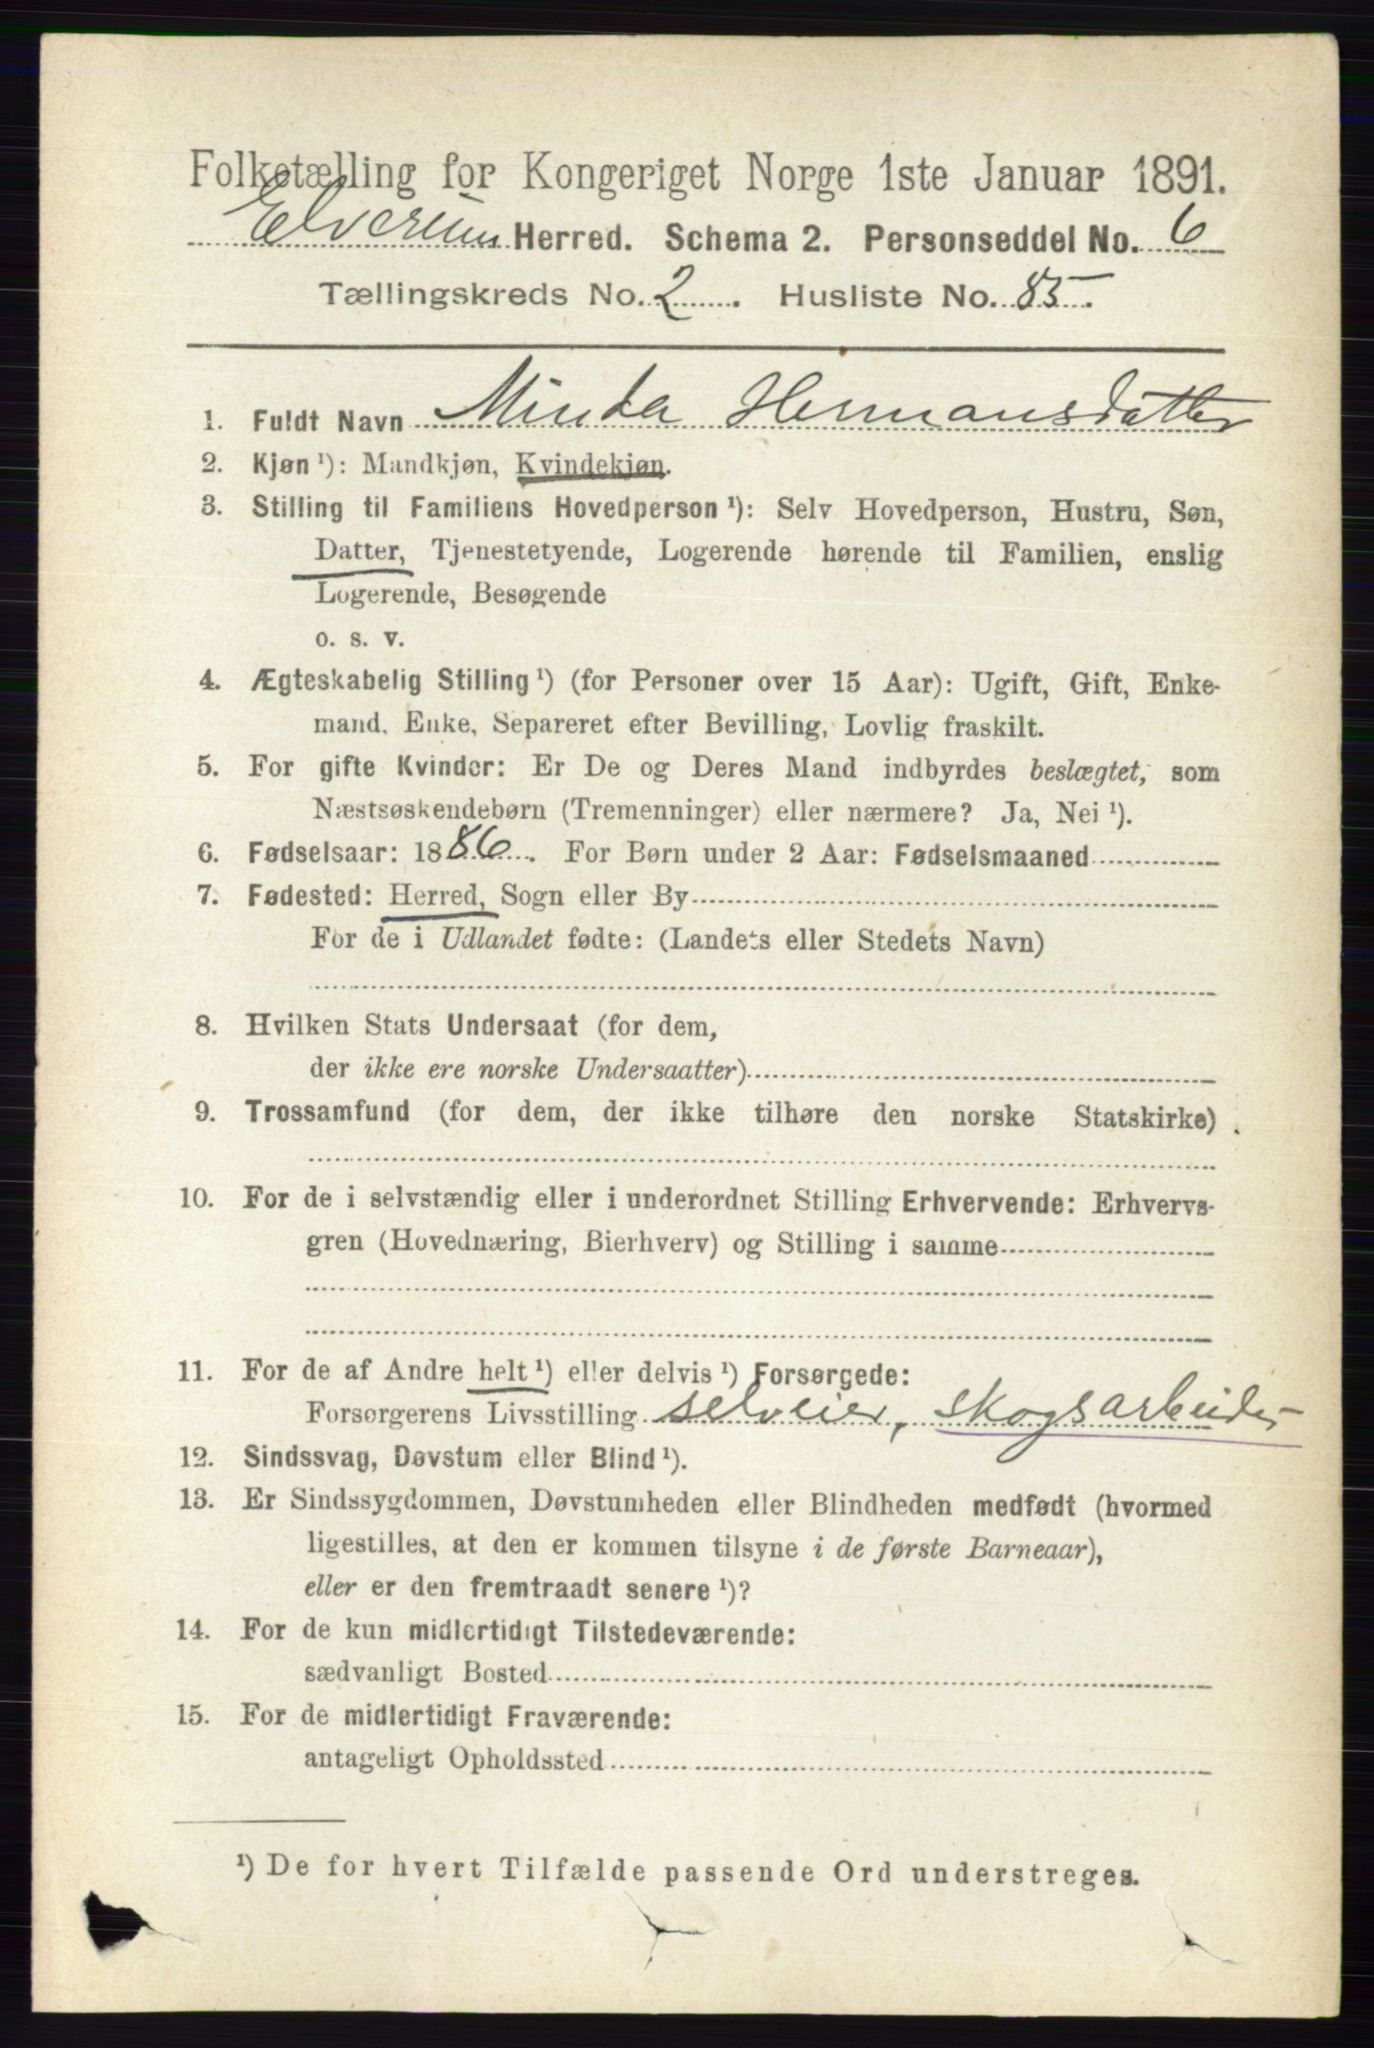 Folketælling for Kongeriget Norge 1ste Januar 1891.
Elverum Herred. Schema 2. Personseddel No. 6
Tællingskreds No. 2. Husliste No. 85.
1. Fuldt Navn Minda Hermansdatter
2. Kjøn ¹): Mandkjøn, Kvindekjøn.
3. Stilling til Familiens Hovedperson ¹): Selv Hovedperson, Hustru, Søn,
Datter, Tjenestetyende, Logerende hørende til Familien, enslig
Logerende, Besøgende
o. s. v.
4. Ægteskabelig Stilling ¹) (for Personer over 15 Aar): Ugift, Gift, Enke-
mand, Enke, Separeret efter Bevilling, Lovlig fraskilt.
5. For gifte Kvinder: Er De og Deres Mand indbyrdes beslægtet, som
Næstsøskendebørn (Tremenninger) eller nærmere? Ja, Nei ¹).
6. Fødselsaar: 1886. For Børn under 2 Aar: Fødselsmaaned
7. Fødested: Herred, Sogn eller By
For de i Udlandet fødte: (Landets eller Stedets Navn)
8. Hvilken Stats Undersaat (for dem,
der ikke ere norske Undersaatter)
9. Trossamfund (for dem, der ikke tilhøre den norske Statskirke)
10. For de i selvstændig eller i underordnet Stilling Erhvervende: Erhvervs-
gren (Hovednæring, Bierhverv) og Stilling i samme
11. For de af Andre helt ¹) eller delvis ¹) Forsørgede:
Forsørgerens Livsstilling selveier, skogsarbeider
12. Sindssvag, Døvstum eller Blind ¹).
13. Er Sindssygdommen, Døvstumheden eller Blindheden medfødt (hvormed
ligestilles, at den er kommen tilsyne i de første Barneaar),
eller er den fremtraadt senere ¹)?
14. For de kun midlertidigt Tilstedeværende:
sædvanligt Bosted
15. For de midlertidigt Fraværende:
antageligt Opholdssted
¹) De for hvert Tilfælde passende Ord understreges.